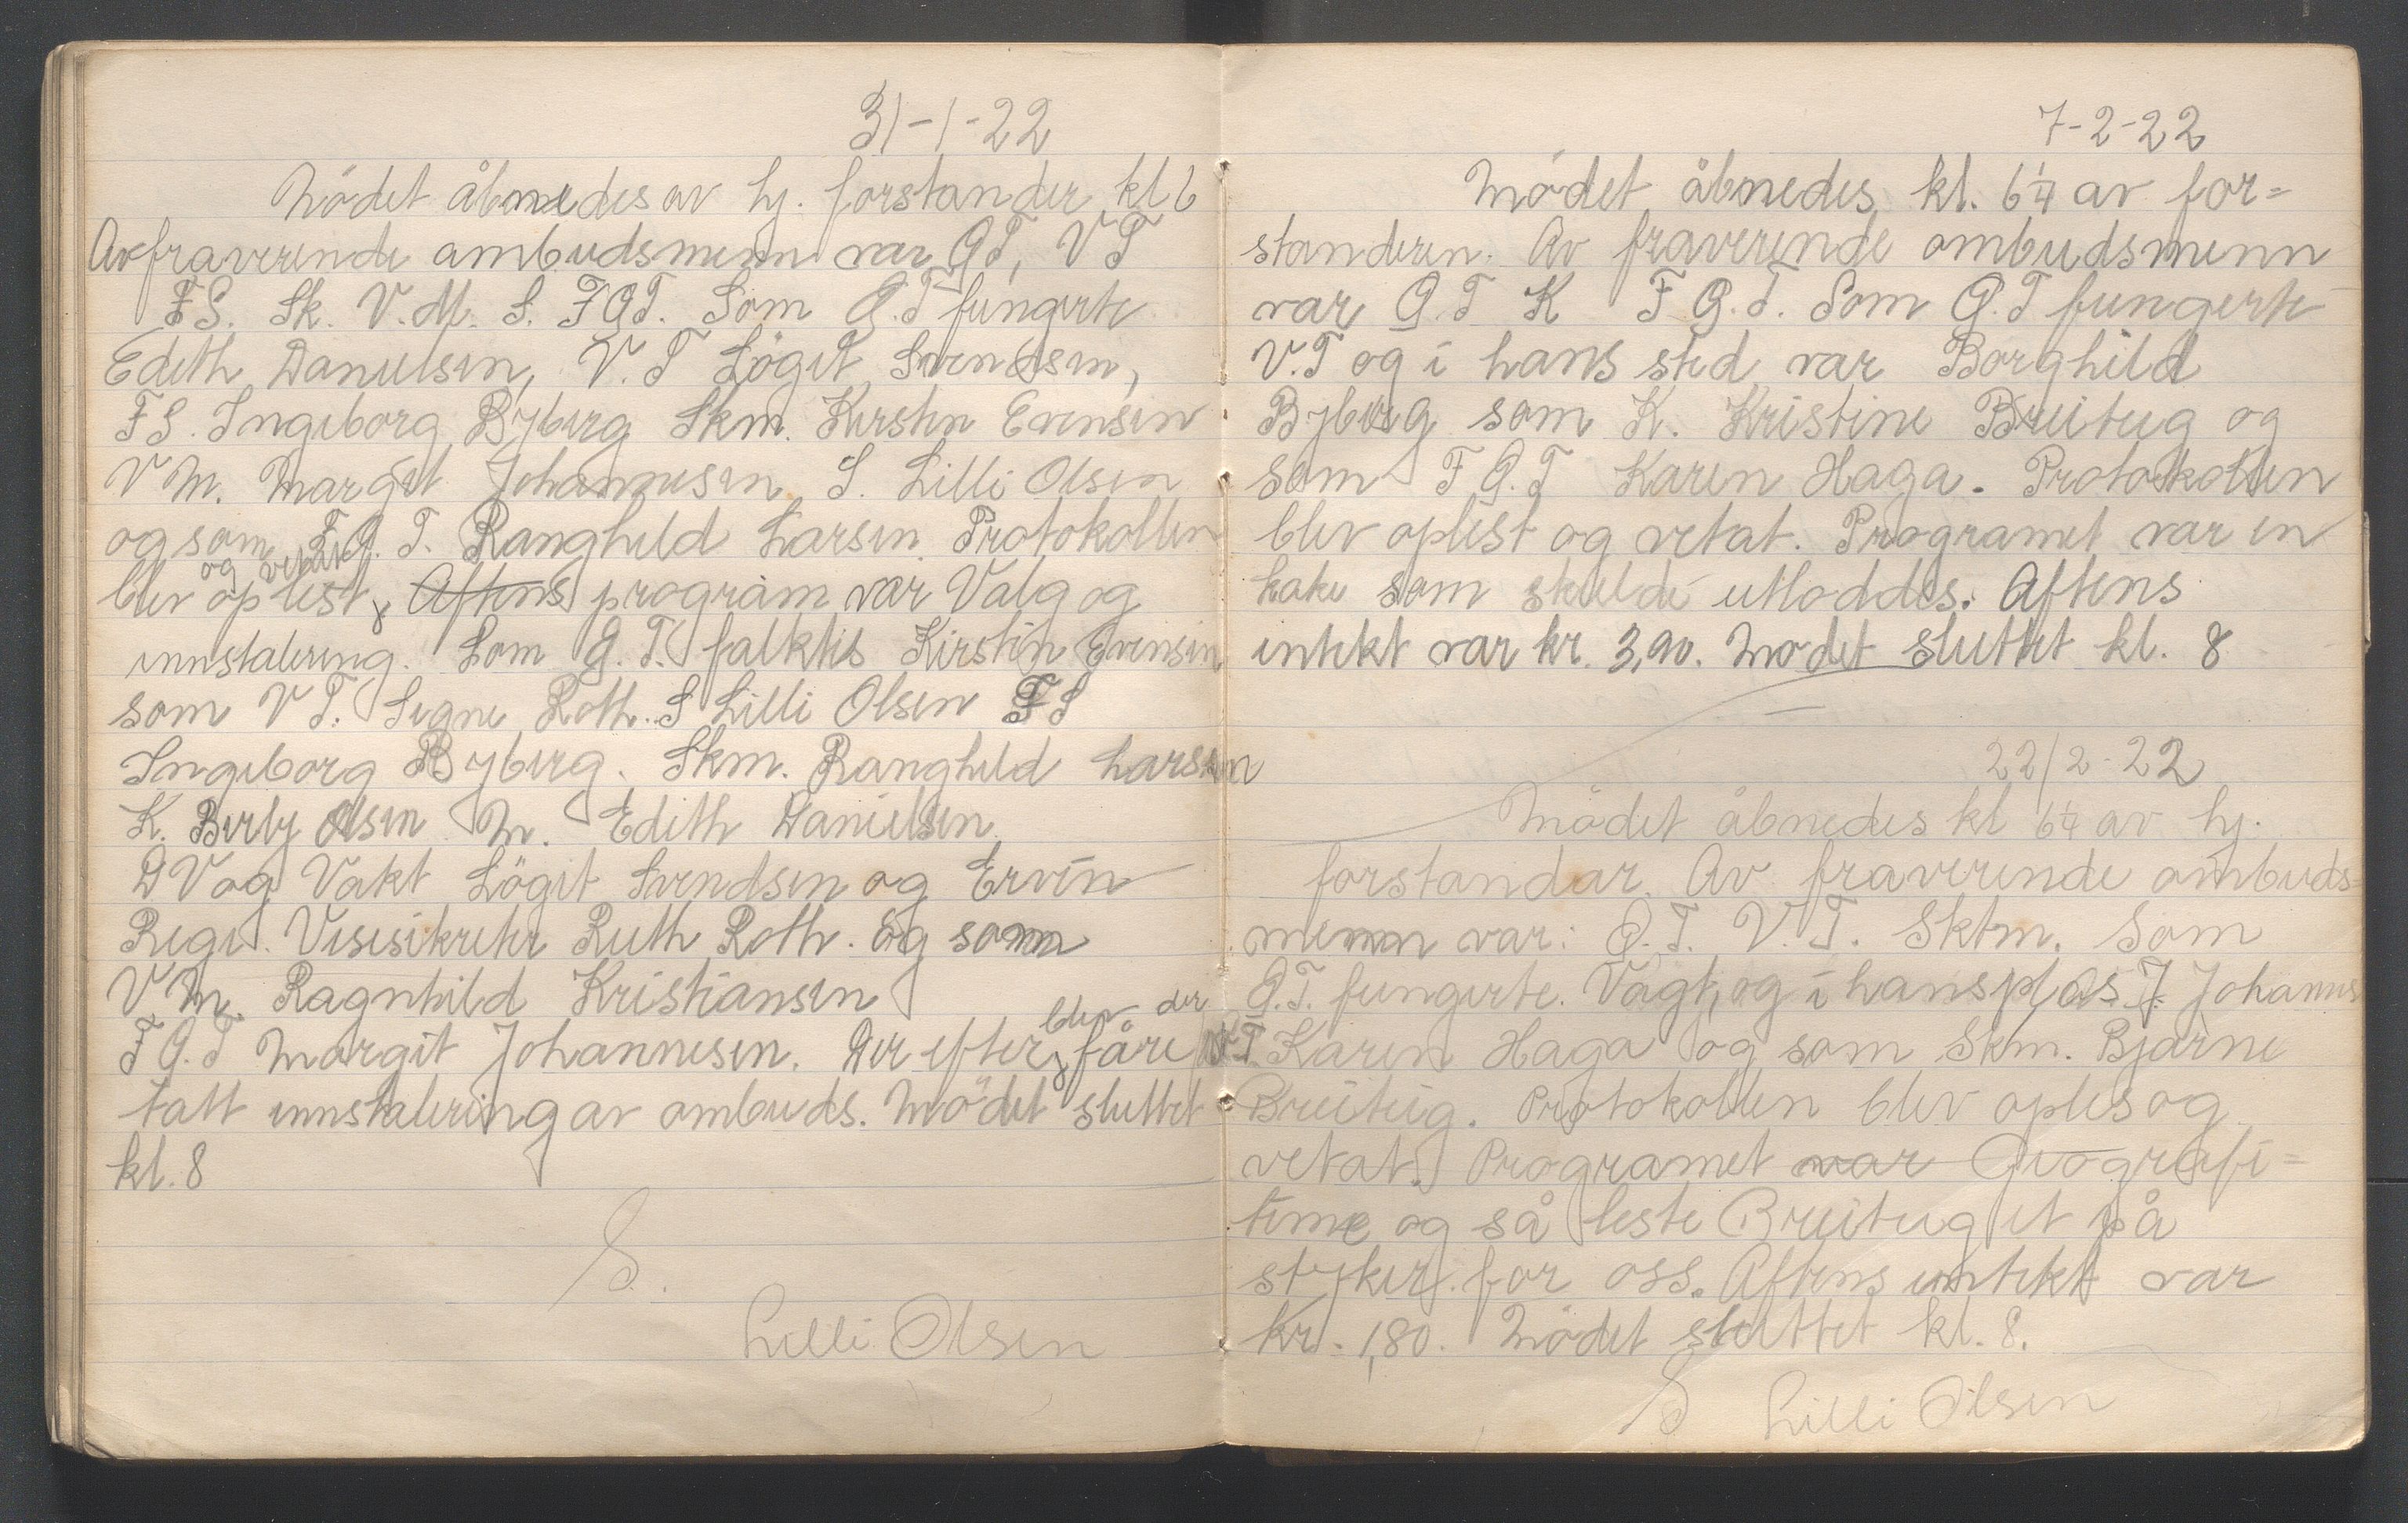 31-1-22
Mödet åbnedes av hj. forstander kl 6
Av fraverende ombudsmenn var G T, V T
F S. Sk. V. M. S. F G T. Som G. T fungerte
Edith Danielsen, V. T Lögit Svendsen,
F S. Ingeborg Byberg Skm. Kirsten Evensen
V M. Margit Johannesen S. Lilli Olsen
og som F G. T. Ranghild Larsen Protokollen
og vetat
blev oplest, Aftens program var Valg og
innstalering. Som G. T. falktes Kirsten Evensen
som V T. Signe Roth. S Lilli Olsen F S
Ingeborg Byberg. Skm. Ranghild Larsen
K. Berly Olsen M. Edith Danielsen
D V og Vakt Lögit Svendsen og Ervin
Regi. Visesikreter Ruth Roth. og som
V M. Ragnhild Kristiansen
F G. T Margit Johannesen. Der efter blev der fåre
tatt innstalering av ombuds. Mödet sluttet
kl. 8
S.
Lilli Olsen
7-2-22
Mödet åbnedes kl. 6 1/4 av for=
standeren. Av fraverende ombudsmenn
var G. T K F G. T. Som G. T fungerte
V. T og i hans sted var Borghild
Byberg som K. Kristine Breiteig og
som F G. T Karen Haga. Protokollen
blev oplest og vetat. Programet var en
kake som skulde utloddes. Aftens
intekt var kr. 3,90. Modet sluttet kl. 8
22/2-22
Mödet åbnedes kl 6 1/4 av hj.
forstandar. Av fraverende ombuds=
menn var: G. T. V. T. Sktm. Som
G. T. fungerte. Vagt, og i hans plas J. Johannes
V T Karen Haga og som Skm. Bjarne
Breiteig. Protokollen blev oples og
vetat. Programet var Geografi=
time og så leste Breiteig et på
styker for oss. Aftens intekt var
kr. 1,80. Mödet sluttet kl. 8.
S Lilli Olsen